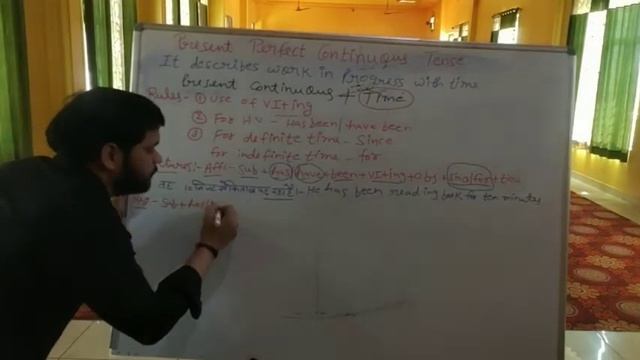 Present Perfect Continuous Tense
It describes work in Progress with time
Present Continuous + Time
Rules:- ① Use of VI+ing
② For HV - has been/have been
③ For definite time - Since
for indefinite time - for
:- Aff:- Sub + has/have + been + VI+ing + obj + since/for + time
वह 10 मिनट से किताब पढ़ रहा है :- He has been reading book for ten minutes
Neg - Sub + has